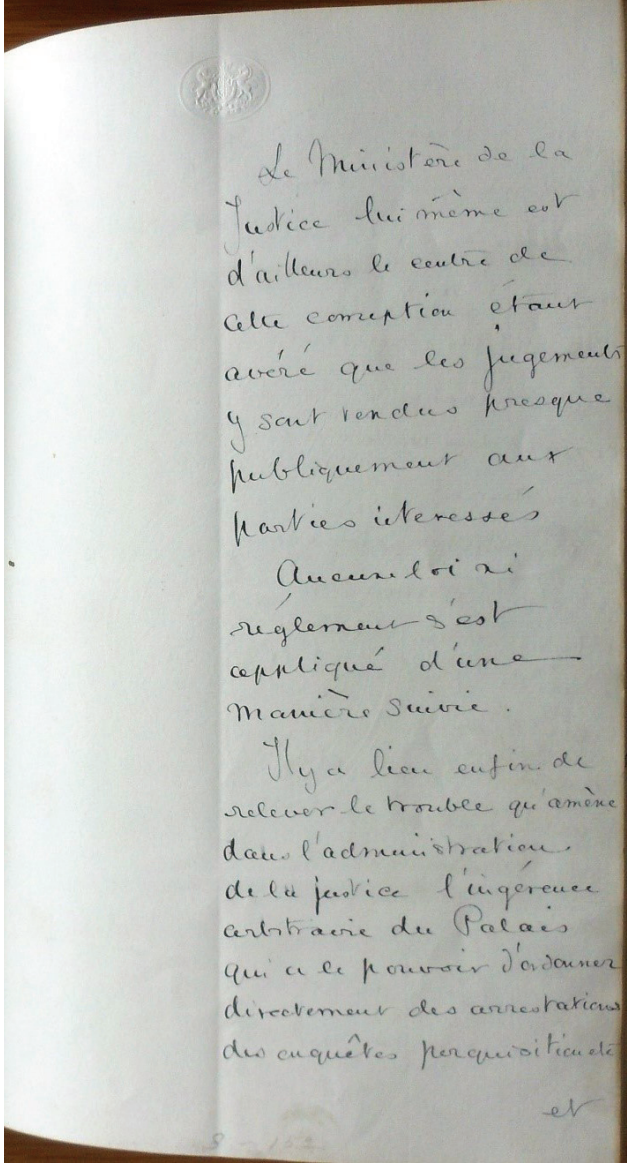 Le Ministère de la
Justice lui même est
d'ailleurs le centre de
cette corruption étant
avéré que les jugements
y sont vendus presque
publiquement aux
parties interessés
Aucune loi ni
réglement n'est
appliqué d'une
manière suivie.
Il y a lieu enfin de
relever le trouble qu'amène
dans l'administration
de la justice l'ingérence
arbitraire du Palais
qui a le pouvoir d'ordonner
directement des arrestations
des enquêtes perquisition etc
et